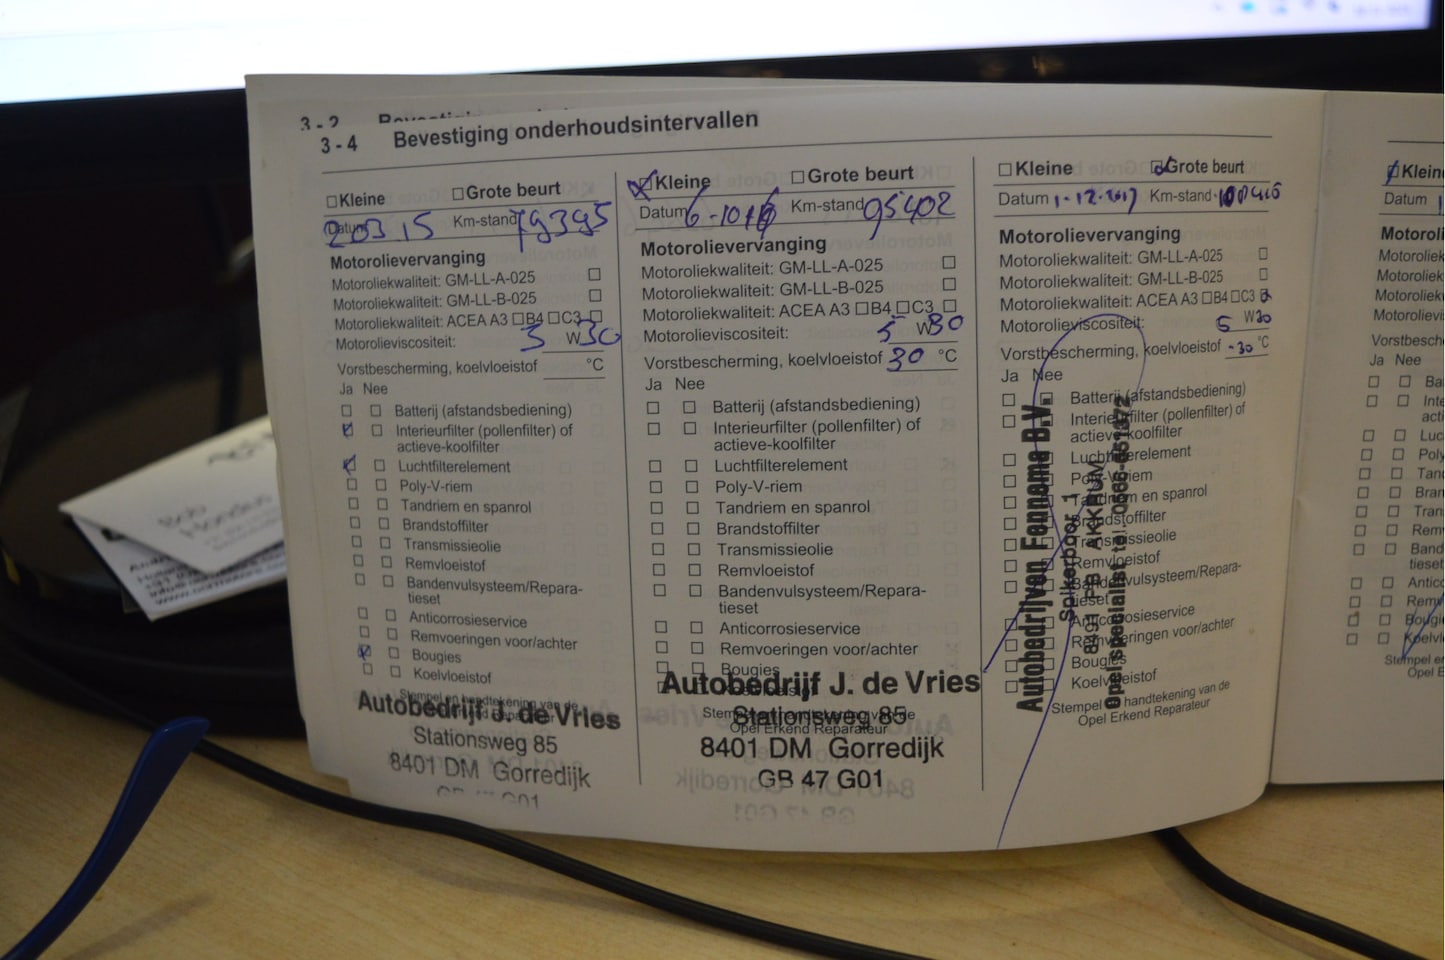 3 - 2
3 - 4 Bevestiging onderhoudsintervallen
☐Kleine ☐Grote beurt
Datum 20315 Km-stand 79395
Motorolievervanging
Motoroliekwaliteit: GM-LL-A-025 ☐
Motoroliekwaliteit: GM-LL-B-025 ☐
Motoroliekwaliteit: ACEA A3 ☐B4 ☐C3 ☐
Motorolieviscositeit: 5 W30
Vorstbescherming, koelvloeistof °C
Ja Nee
Batterij (afstandsbediening)
Interieurfilter (pollenfilter) of
actieve-koolfilter
Luchtfilterelement
Poly-V-riem
Tandriem en spanrol
Brandstoffilter
Transmissieolie
Remvloeistof
Bandenvulsysteem/Repara-
tieset
Anticorrosieservice
Remvoeringen voor/achter
Bougies
Koelvloeistof
Stempel en handtekening van de
Autobedrijf J. de Vries
Stationsweg 85
8401 DM Gorredijk
☒Kleine ☐Grote beurt
Datum 6-10-16 Km-stand 95402
Motorolievervanging
Motoroliekwaliteit: GM-LL-A-025 ☐
Motoroliekwaliteit: GM-LL-B-025 ☐
Motoroliekwaliteit: ACEA A3 ☐B4 ☐C3 ☐
Motorolieviscositeit: 5 W30
Vorstbescherming, koelvloeistof 30 °C
Ja Nee
Batterij (afstandsbediening)
Interieurfilter (pollenfilter) of
actieve-koolfilter
Luchtfilterelement
Poly-V-riem
Tandriem en spanrol
Brandstoffilter
Transmissieolie
Remvloeistof
Bandenvulsysteem/Repara-
tieset
Anticorrosieservice
Remvoeringen voor/achter
Bougies
Autobedrijf J. de Vries
Stempel en handtekening van de
Opel Erkend Reparateur
Stationsweg 85
8401 DM Gorredijk
GB 47 G01
☐Kleine ☒Grote beurt
Datum 1-12-2017 Km-stand
Motorolievervanging
Motoroliekwaliteit: GM-LL-A-025 ☐
Motoroliekwaliteit: GM-LL-B-025 ☐
Motoroliekwaliteit: ACEA A3 ☐B4 ☐C3 ☒
Motorolieviscositeit: 5 W30
Vorstbescherming, koelvloeistof -30 °C
Ja Nee
Batterij (afstandsbediening)
Interieurfilter (pollenfilter) of
actieve-koolfilter
Luchtfilterelement
Poly-V-riem
Tandriem en spanrol
Brandstoffilter
Transmissieolie
Remvloeistof
Bandenvulsysteem/Repara-
tieset
Anticorrosieservice
Remvoeringen voor/achter
Bougies
Koelvloeistof
Stempel en handtekening van de
Opel Erkend Reparateur
Autobedrijven Fennema B.V.
Spikerboor 1
8491 PB AKKRUM
Opel specialist tel.
Datum
Ja Nee